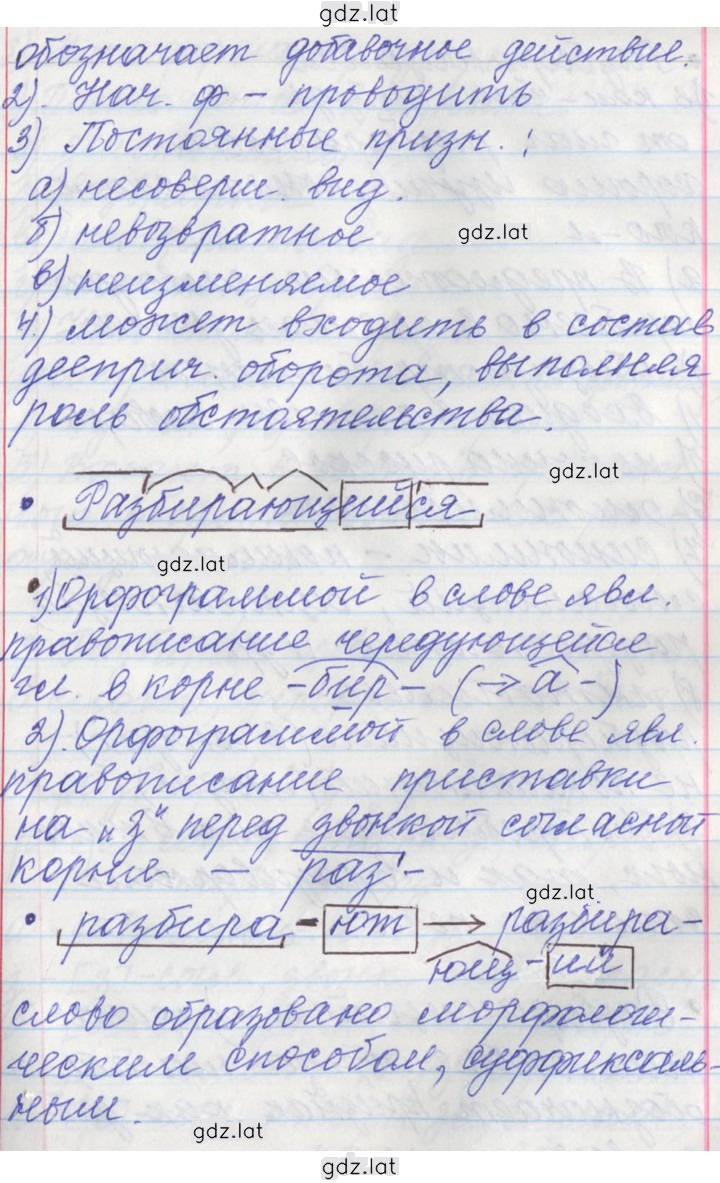 gdz.lat
обозначает добавочное действие.
2). Нач. ф – проводить
3) Постоянные призн. :
а) несоверш. вид.
б) невозвратное
gdz.lat
в) неизменяемое
4) может входить в состав
дееприч. оборота, выполняя
роль обстоятельства.
gdz.lat
• Разбирающийся
gdz.lat
1) Орфограммой в слове явл.
правописание чередующейся
гл. в корне -бир- (→ а -)
2). Орфограммой в слове явл.
правописание приставки
на „з" перед звонкой согласной
корня – раз -
gdz.lat
• разбира - ют → разбира-
ющ - ий
слово образовано морфологи-
ческим способом, суффиксаль-
ным.
gdz.lat
gdz.lat